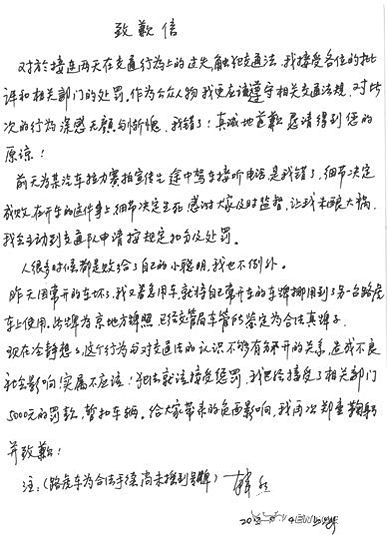 致歉信
对于接连两天在交通行为上的过失,触犯交通法,我接受各位的批
评和相关部门的处罚。作为公众人物我更应该遵守相关交通法规,对此
次的行为深感无颜与惭愧,我错了!真诚地道歉恳请得到您的
原谅!
前天为某汽车拉力赛拍宣传片途中驾车接听电话是我错了,细节决定
成败,在开车的这件事上,细节决定生死感谢大家及时监督,让我未酿大祸,
我会主动到交通队申请按规定扣分及处罚。
人很多时候都是败给了自己的小聪明,我也不例外。
昨天因常开的车坏了,我又着急用车,就将自己常开车的车牌挪用到了另一台路虎
车上使用,此牌为京地方牌照,已经交管局车管所鉴定为合法真牌子。
现在冷静想了,这个行为与对交通法的认识不够有分不开的关系,造成不良
社会影响!实属不应该!犯法就该接受惩罚,我已经接受了相关部门
5000元的罚款,暂扣车辆。给大家带来的负面影响,我再次郑重鞠躬
并致歉!
注:(路虎车为合法手续尚未接到号牌)韩